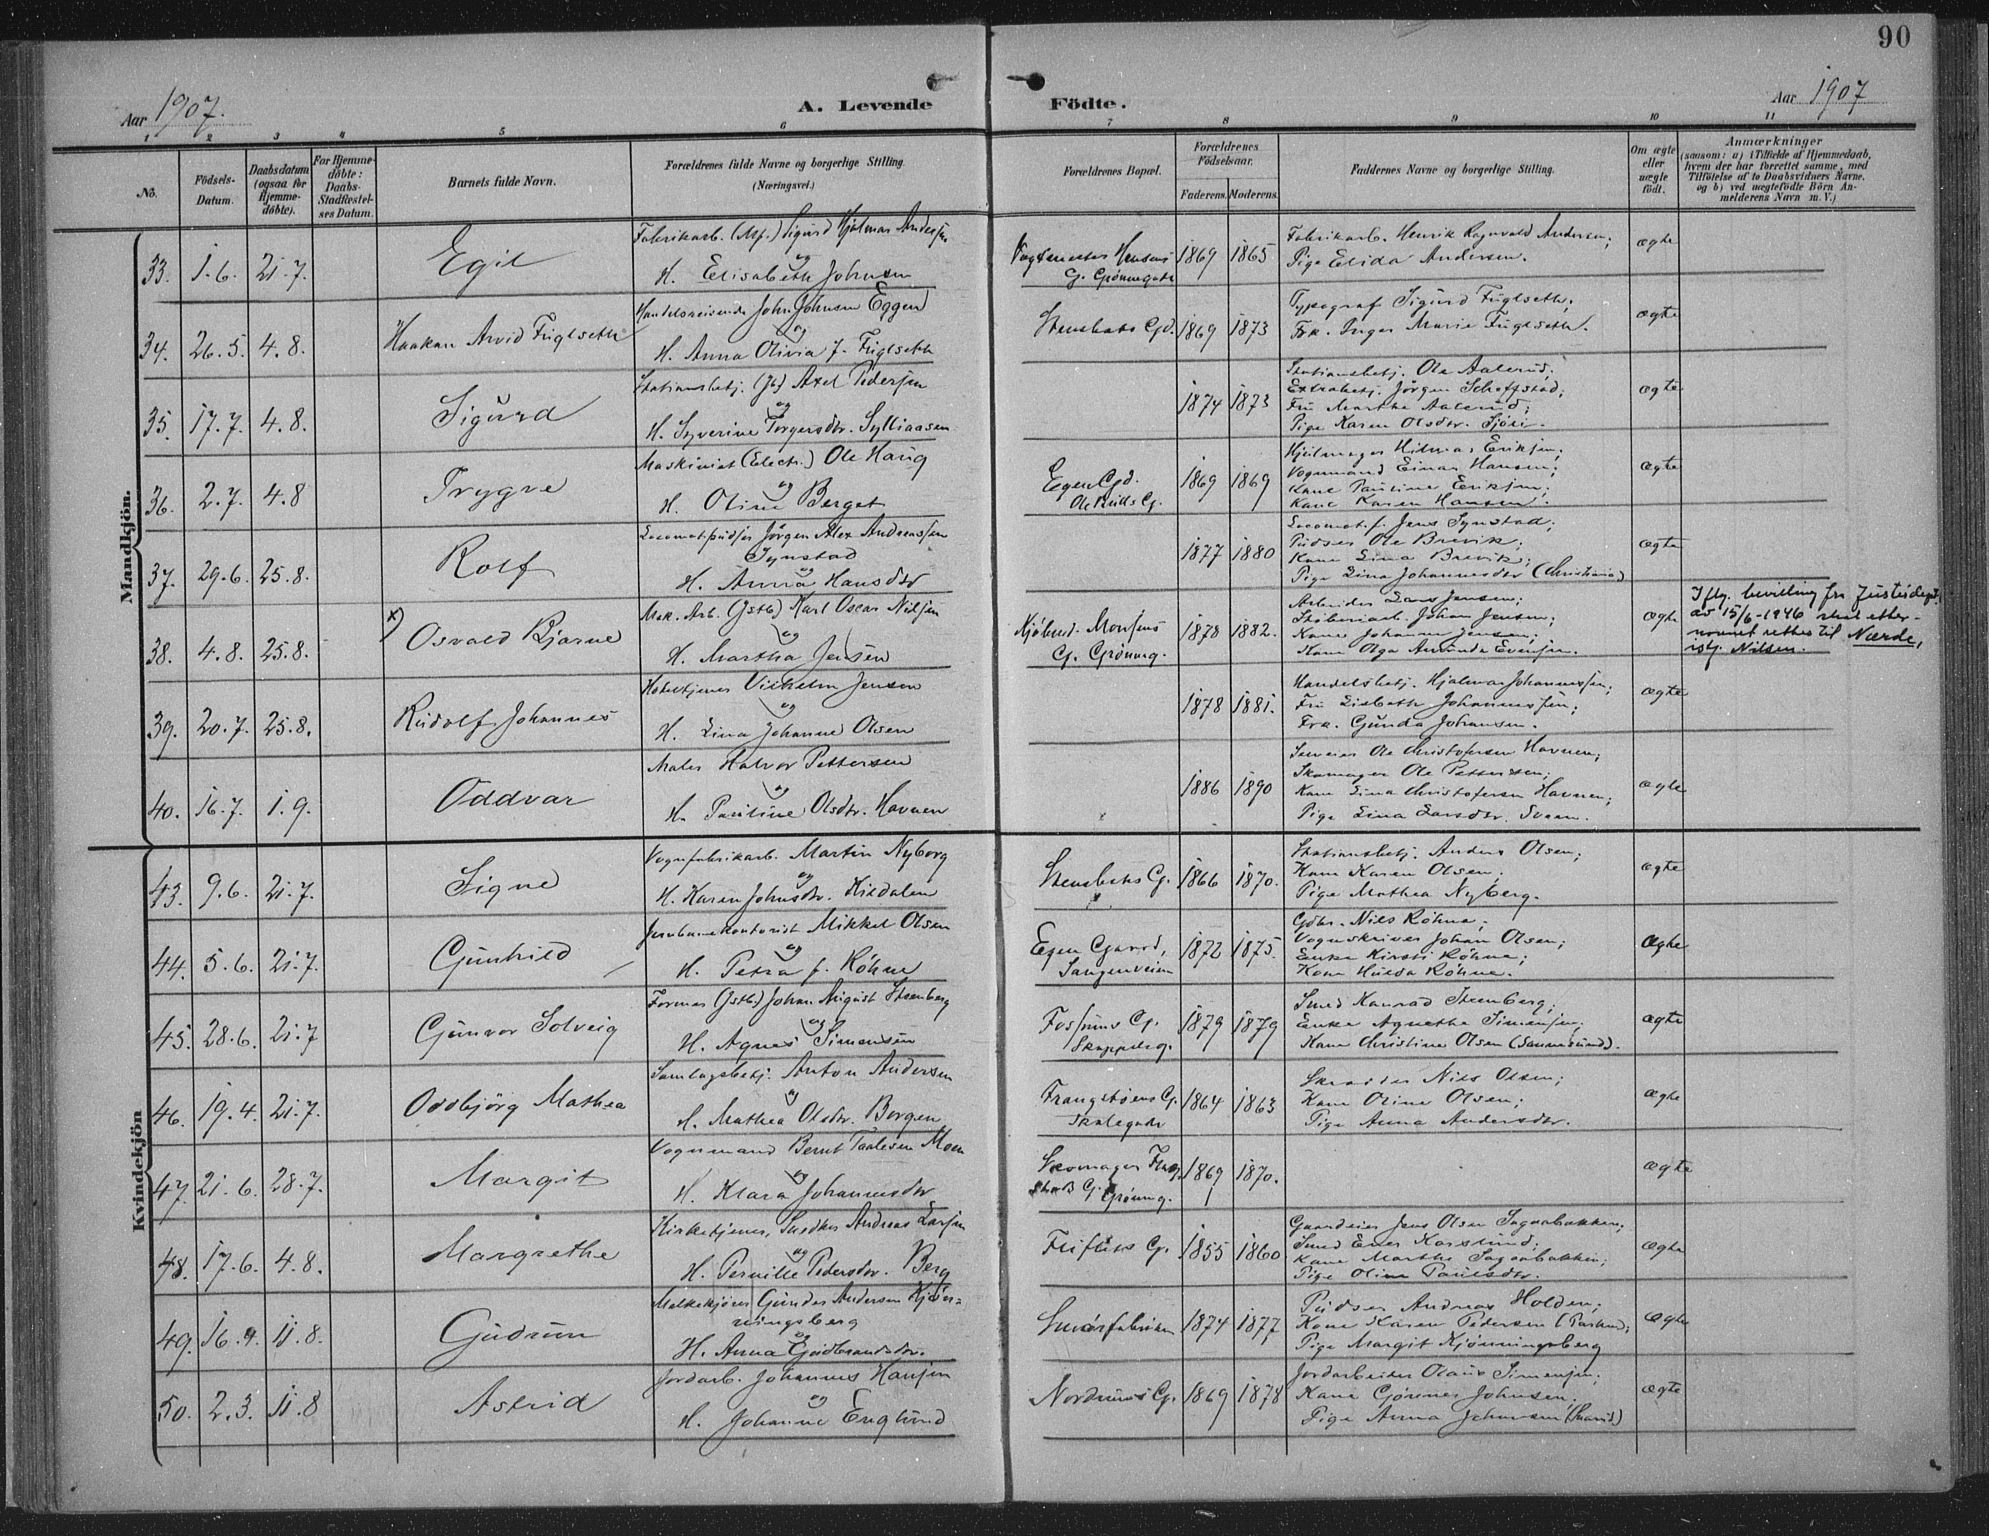 90
Aar 1907.
A. Levende
Födte.
Aar 1907
1 2 3 4 5 6 7 8 9 10 11
No.
Födsels-Datum.
Daabsdatum (ogsaa for Hjemme-döbte).
For Hjemme-döbte: Daabs-Stadfæstel-ses Datum.
Barnets fulde Navn.
Forældrenes fulde Navne og borgerlige Stilling. (Næringsvei.)
Forældrenes Bopæl.
Forældrenes Födselsaar.
Faderens. Moderens.
Faddernes Navne og borgerlige Stilling.
Om ægte eller uægte födt.
Anmærkninger
(saasom: a) i Tilfælde af Hjemmedaab, hvem der har forrettet samme, med Tilföielse af to Daabsvidners Navne, og b) ved uægtefödte Börn An-melderens Navn m. V.)
Mandkjön.
33. 1.6. 21.7. Egil
Fabrikarb. Sigurd Hjalmar Andersen
og
H. Elisabeth Johnsen
G. Grönnegade
1869 1865
Fabrikarb. Henrik Ragnvald Andersen;
Pige Elida Andersen.
ægte
34. 26.5. 4.8. Haakon Arvid Fuglseth
Handelsreisende John Johnsen Eggen
og
H. Anna Olivia J. Fuglseth
Stensbaks Gd. 1869 1873
Typograf Sigurd Fuglseth;
Frk. Inger Marie Fuglseth.
ægte
35. 17.7. 4.8. Sigurd
Stationsbetj. (Jb) Axel Pedersen
og
H. Syverine Torgersdtr. Sylliaasen
1874 1873
Stationsbetj. Ole Aalerud;
Extrabetj. Jörgen Scheffstad;
Fru Marthe Aalerud;
Pige Karen Olsdtr. Sjöli.
ægte
36. 2.7. 4.8 Trygve
Maskinist (Electr.) Ole Haug
og
H. Oline Berget
Egen Gd.
1869 1869
Hjulmager Hilmar Eriksen;
Vognmand Einar Hansen;
Kone Pauline Eriksen;
Kone Karen Hansen.
ægte
37. 29.6. 25.8. Rolf
Locomotivpudser Jörgen Alex Andreassen
Synstad
og
H. Anna Hansdtr
1877 1880
Locomot.f. Jens Synstad;
Pudser Ole Brevik;
Kone Lina Brevik;
Pige Lina Johannesdtr (Christiania)
ægte
38. 4.8. 25.8. x) Osvald Bjarne
Mek. Arb. (Jstb) Karl Oscar Nilsen
og
H. Martha Jensen
Kjöbmd. Monsens
G. Grönneg.
1878 1882.
Arbeider Lars Jensen;
Stöberiarb. Johan Jensen;
Kone Johanne Jensen;
Kone Olga Amunda Evensen.
ægte
Iflg. bevilling fra Justisdept.
av 15/6-1946 skal etter-
navnet rettes til Nærde,
istf. Nilsen.
39. 20.7. 25.8. Rudolf Johannes
Hoteltjener Vilhelm Jensen
og
H. Lina Johanne Olsen
1878 1881.
Handelsbetj. Hjalmar Johannessen;
Fru Lisbeth Johannessen;
Frk. Gunda Johansen.
ægte
40. 16.7. 1.9. Oddvar
Maler Halvor Pettersen
og
H. Pauline Olsdtr. Havnen
1886 1890
Ole Christofersen Havnen;
Skomager Ole Pettersen;
Kone Lina Christofersen Havnen;
Pige Lina Larsdtr. Sveen.
ægte
Kvindekjön
43. 9.6. 21.7. Signe
Vognfabrikarb. Martin Nyborg
og
H. Karen Johnsdtr. Kildalen
Stensbaks G. 1866 1870.
Stationsbetj. Anders Olsen;
Kone Karen Olsen;
Pige Mathea Nyberg.
ægte
44. 5.6. 21.7. Gunhild
Jernbanekontorist Mikkel Olsen
og
H. Petra f. Röhne
Egen Gaard,
Vangsveien
1872 1875.
Gdbr. Nils Röhne;
Vognskriver Johan Olsen;
Enke Kirsti Röhne;
Kone Hulda Röhne.
Ægte
45. 28.6. 21.7 Gunvor Solveig
Former (Jstb) Johan August Steenberg
og
H. Agnes Simensen
Fossums G.
1879 1879
Smed Konrad Steenberg;
Enke Agnethe Simensen;
Kone Christine Olsen (Sannesund).
ægte
46. 19.4. 21.7. Oddbjörg Mathea
Samlagsbetj. Anton Andersen
og
H. Mathea Olsdtr. Borgen
Frangstöens G.
Skolegade
1864 1863
Skrædder Nils Olsen;
Kone Oline Olsen;
Pige Anna Andersdtr.
ægte
47. 21.6. 28.7. Margit
Vognmand Bernt Paulsen Moen
og
H. Klara Johannesdtr
Skomager
G. Grönneg.
1869 1870.
ægte
48. 17.6. 4.8. Margrethe
Kirketjener, Snedker Andreas Larsen
og
H. Pernille Pedersdtr. Berg
1855 1860
Gaardeier Jens Olsen Sagaabakken;
Smed Even Karslund;
Kone Marthe Sagaabakken;
Pige Oline Paulsdtr.
ægte
49. 16.4. 11.8. Gudrun
Melkekjörer Gunder Andersen Kjön-
ningsberg
og
H. Anna Gudbrandsdtr.
Smörfabriken 1874 1877
Pudser Andreas Holden;
Kone Karen Pedersen
Pige Margit Kjönningsberg
ægte
50. 2.3. 11.8 Astrid
Jordarb. Johannes Hansen
og
H. Johanne Englund
Nordrums G. 1869 1878
Jordarbeider Olaus Simensen;
Kone Gjörine Johnsen;
Pige Anna Johansen
ægte